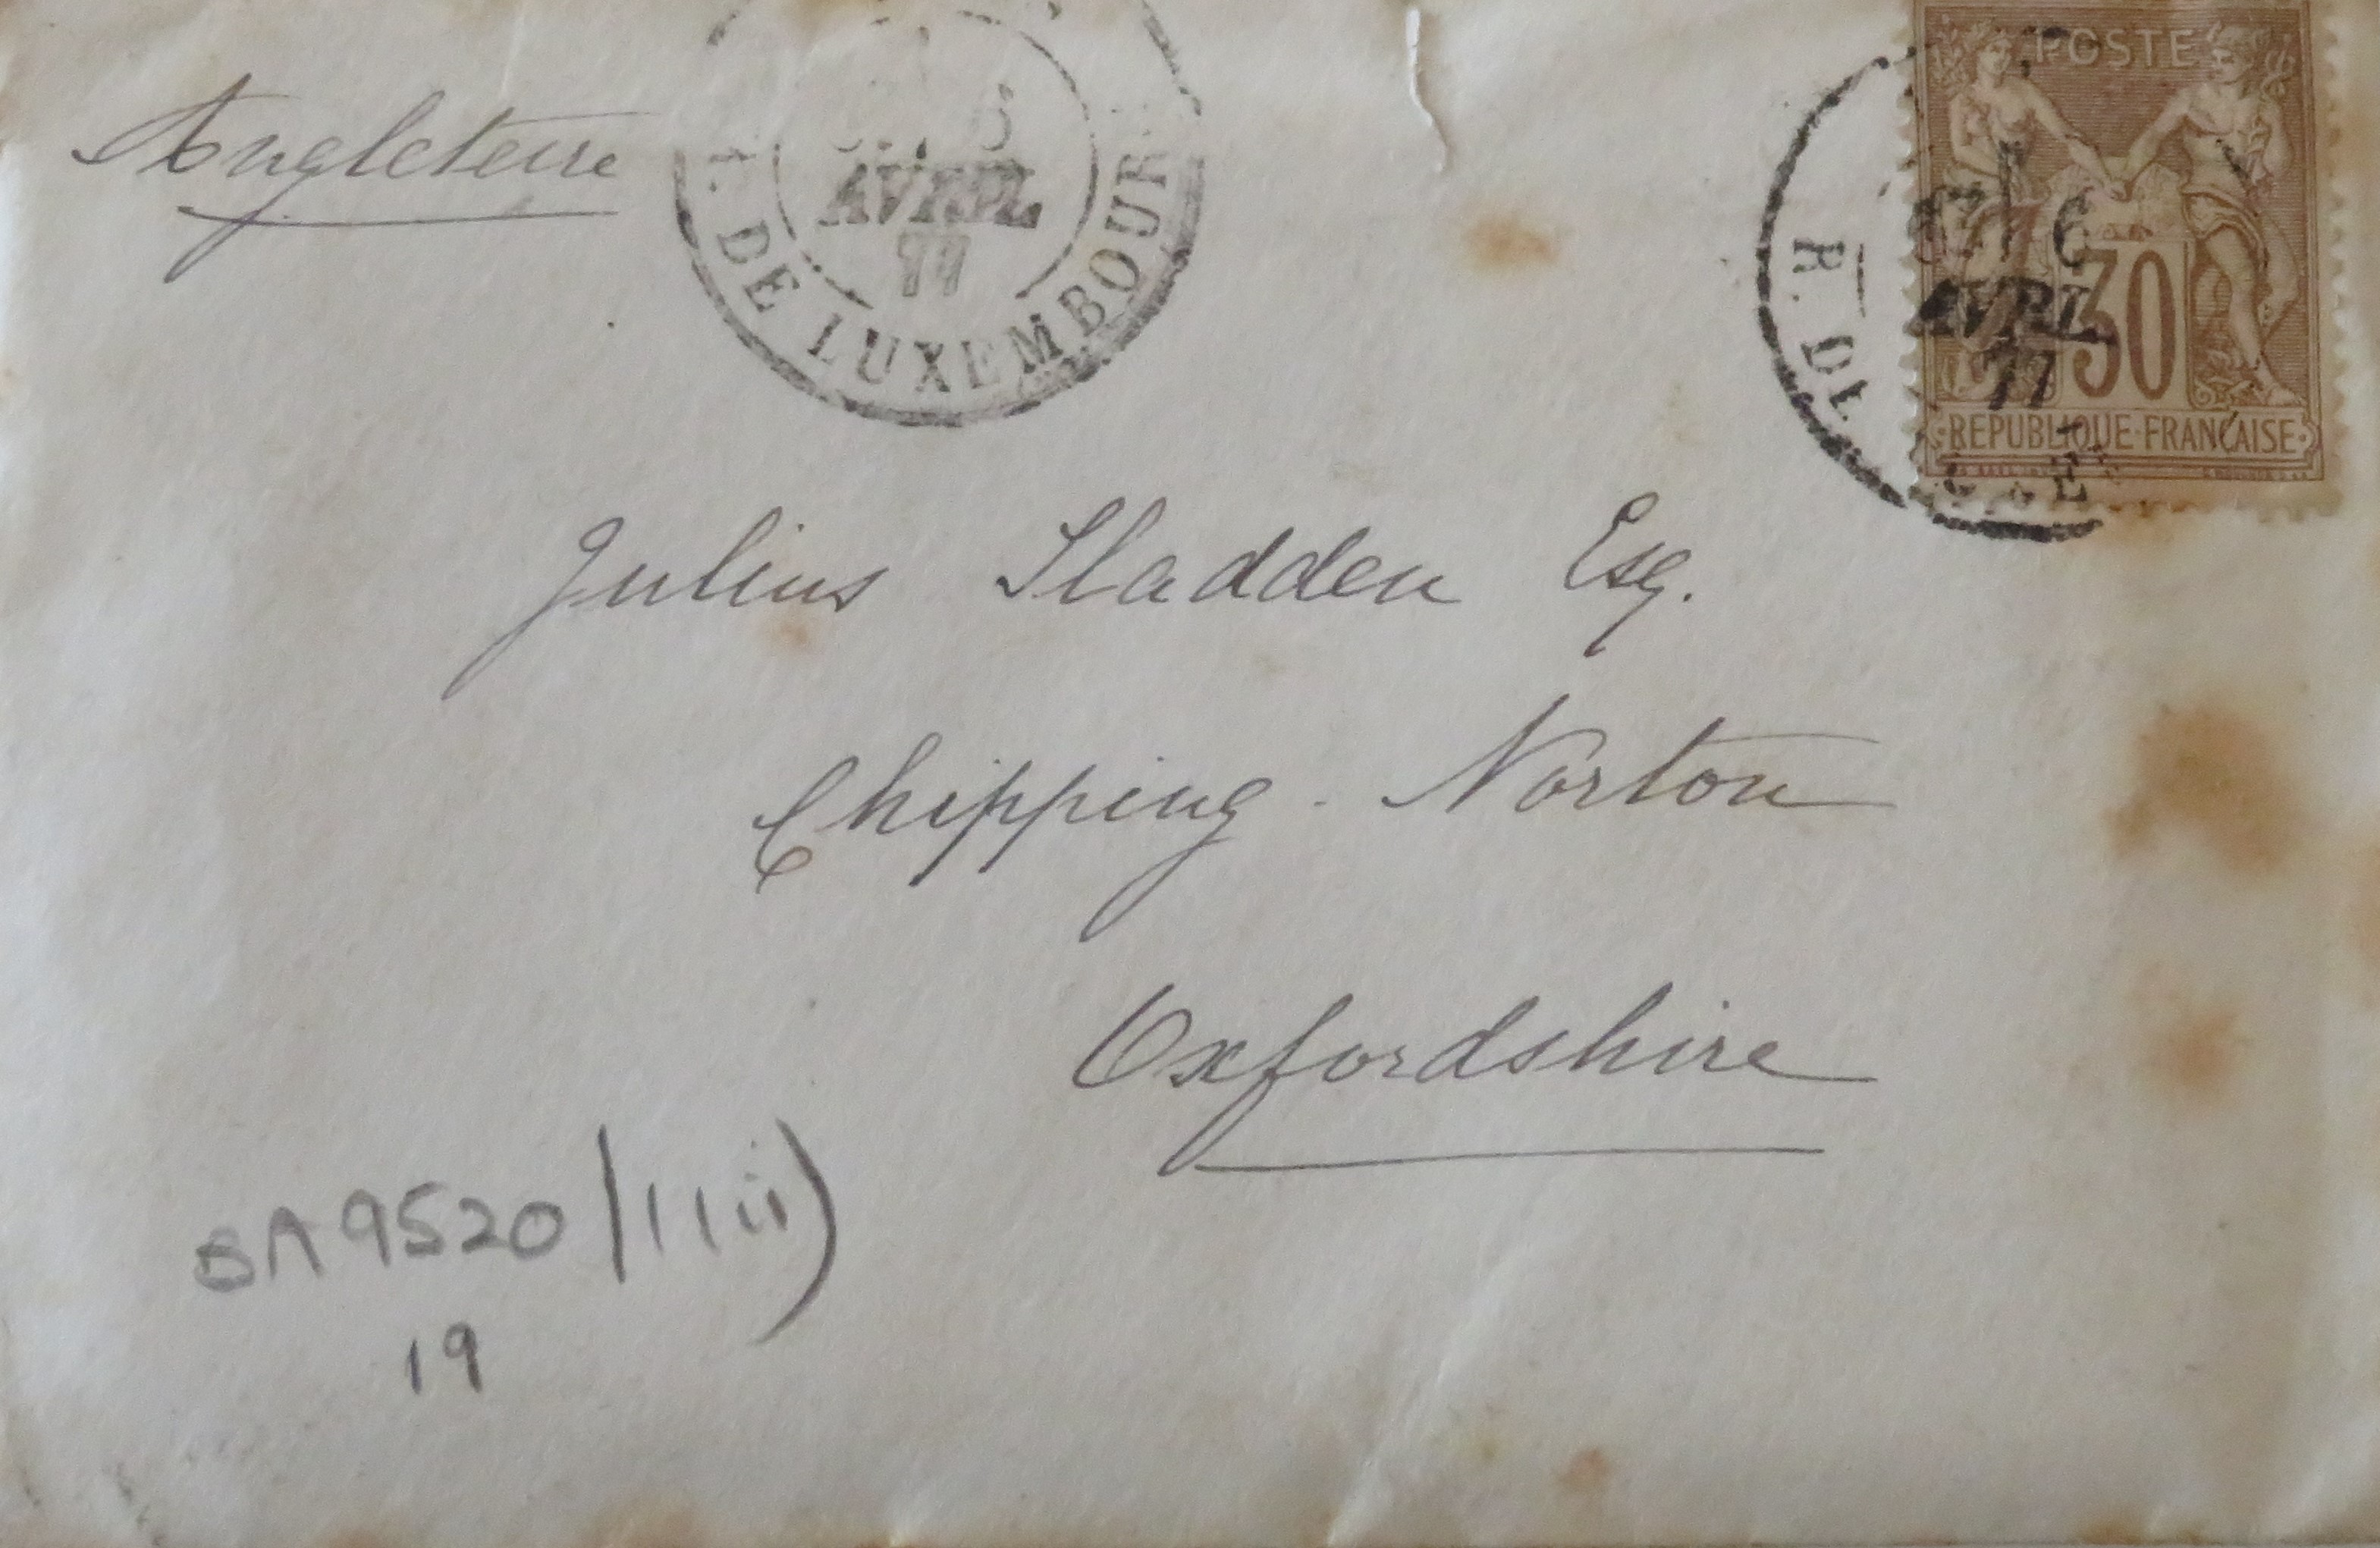 Angleterre
6
AVRIL
77
R. DE LUXEMBOURG
POSTE
6
AVRIL
77
R. DE
30
REPUBLIQUE FRANÇAISE
Julius Sladden Esq.
Chipping - Norton
Oxfordshire
BA9520/11ii)
19